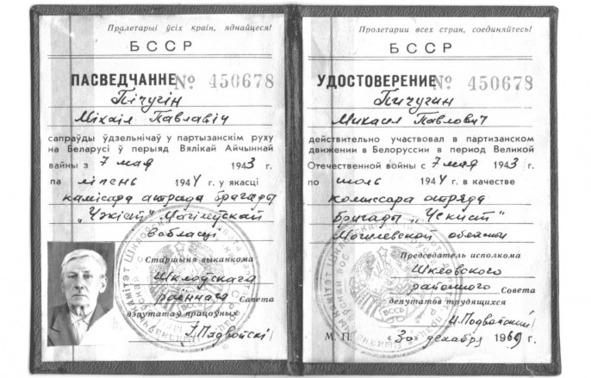 Пралетарыі ўсіх краін, яднайцеся!
БССР
ПАСВЕДЧАННЕ № 450678
Пічугін
Міхаіл Паўлавіч
сапраўды ўдзельнічаў у партызанскім руху
на Беларусі ў перыяд Вялікай Айчыннай
вайны з 7 мая 1943 г.
па ліпень 1944 г. у якасці
камісара атрада брыгады
"Чэкіст" Магілёўскай
вобласці
Старшыня выканкома
Шклоўскага
раённага Савета
дэпутатаў працоўных
Пролетарии всех стран, соединяйтесь!
БССР
УДОСТОВЕРЕНИЕ № 450678
Пичугин
Михаил Павлович
действительно участвовал в партизанском
движении в Белоруссии в период Великой
Отечественной войны с 7 мая 1943 г.
по июль 1944 г. в качестве
комиссара отряда
бригады "Чекист"
Могилевской области
Председатель исполкома
Шкловского
районного Совета
депутатов трудящихся
М. П. декабря 1969 г.